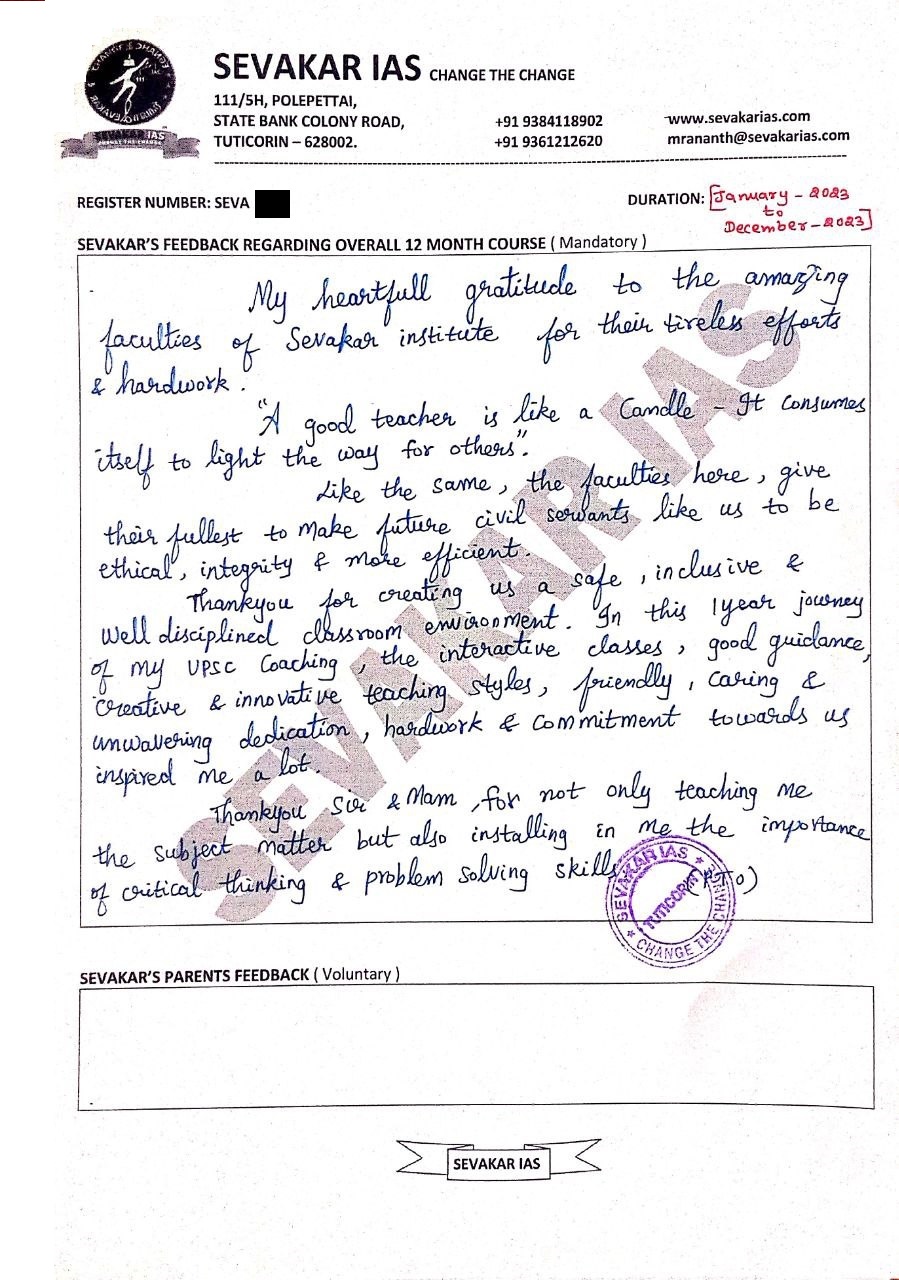 SEVAKAR IAS CHANGE THE CHANGE
111/5H, POLEPETTAI,
STATE BANK COLONY ROAD, +91 9384118902 www.sevakarias.com
TUTICORIN – 628002. +91 9361212620 mrananth@sevakarias.com
SEVAKAR IAS
CHANGE THE CHANGE
REGISTER NUMBER: SEVA
DURATION: [January - 2023
to
December - 2023]
SEVAKAR'S FEEDBACK REGARDING OVERALL 12 MONTH COURSE ( Mandatory )
My heartfull gratitude to the amazing
faculties of Sevakar institute for their tireless efforts
& hardwork.
"A good teacher is like a Candle - It consumes
itself to light the way for others".
Like the same, the faculties here, give
their fullest to make future civil servants like us to be
ethical, integrity & more efficient.
Thankyou for creating us a safe, inclusive &
well disciplined classroom environment. In this 1year journey
of my UPSC Coaching, the interactive classes, good guidance,
creative & innovative teaching styles, friendly, caring &
unwavering dedication, hardwork & commitment towards us
inspired me a lot.
Thankyou Sir & Mam, for not only teaching me
the subject matter but also installing in me the importance
of critical thinking & problem solving skills
(PTO)
SEVAKAR IAS
TUTICORIN
CHANGE THE CHANGE
SEVAKAR IAS
SEVAKAR'S PARENTS FEEDBACK ( Voluntary )
SEVAKAR IAS